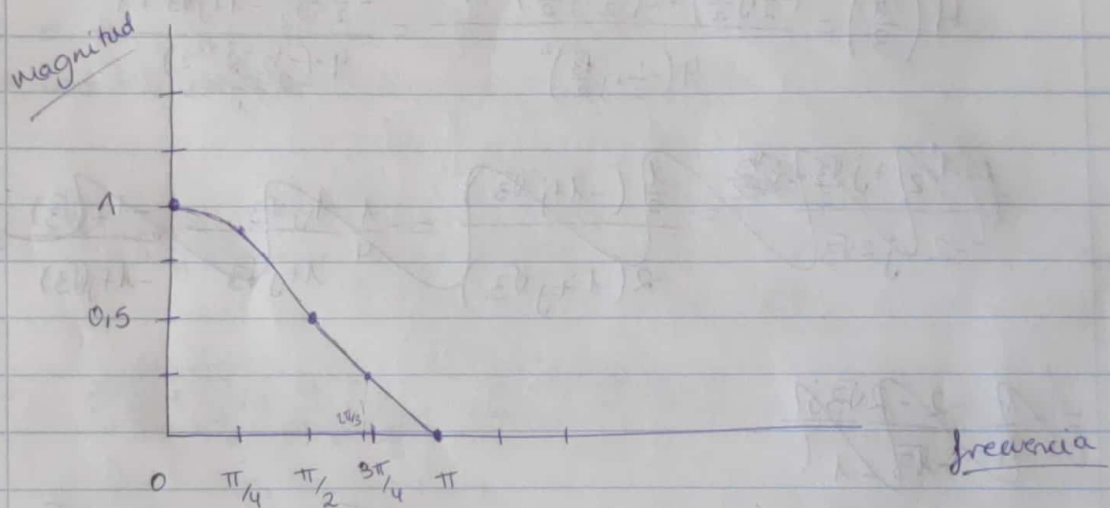 magnitud
1
0,5
2π/3
0 π/4 π/2 3π/4 π
frecuencia